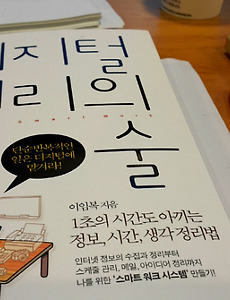 지털
리의
Smart Work
술
단순반복적인
일은 디지털에
맡겨라!
이임복 지음
1초의 시간도 아끼는
정보, 시간, 생각 정리법
인터넷 정보의 수집과 정리부터
스케줄 관리, 메일, 아이디어 정리까지
나를 위한 '스마트 워크 시스템' 만들기!